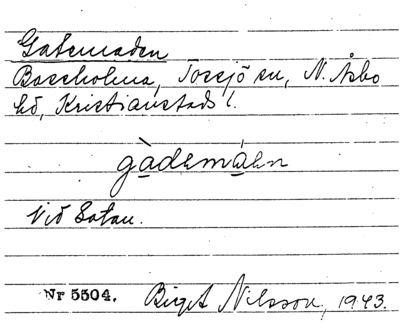 Gatemaden
Bassholma, Tossjö sn, N. Åsbo
hd, Kristianstads l.
gàdemáen
Vid Gatan.
Nr 5504. Birgit Nilsson, 1943.